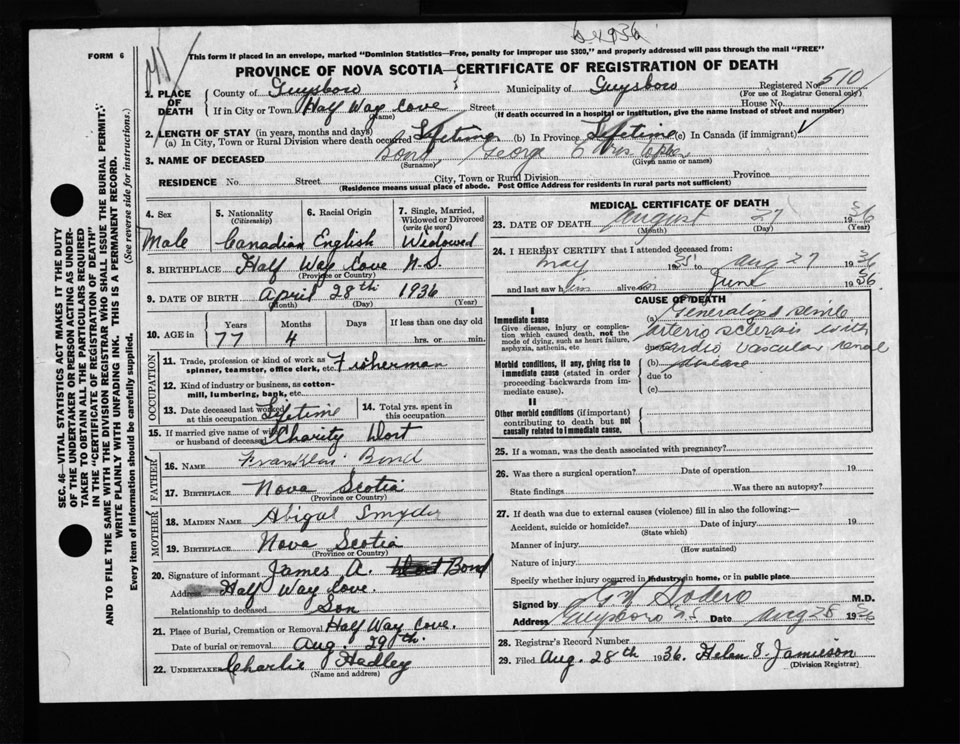 b. 1936
FORM 6
This form if placed in an envelope, marked "Dominion Statistics—Free, penalty for improper use $300," and properly addressed will pass through the mail "FREE"
PROVINCE OF NOVA SCOTIA—CERTIFICATE OF REGISTRATION OF DEATH
SEC. 46—VITAL STATISTICS ACT MAKES IT THE DUTY
OF THE UNDERTAKER OR PERSON ACTING AS UNDER-
TAKER TO OBTAIN ALL THE PARTICULARS REQUIRED
IN THE "CERTIFICATE OF REGISTRATION OF DEATH"
AND TO FILE THE SAME WITH THE DIVISION REGISTRAR WHO SHALL ISSUE THE BURIAL PERMIT.
WRITE PLAINLY WITH UNFADING INK. THIS IS A PERMANENT RECORD.
Every item of information should be carefully supplied. (See reverse side for instructions.)
1. PLACE OF DEATH
County of Guysboro Municipality of Guysboro Registered No. 510
(For use of Registrar General only)
If in City or Town Half Way Cove Street House No.
(Name) (If death occurred in a hospital or institution, give the name instead of street and number)
2. LENGTH OF STAY (in years, months and days)
(a) In City, Town or Rural Division where death occurred Lifetime (b) In Province Lifetime (c) In Canada (if immigrant)
3. NAME OF DECEASED Bond, George Christopher
(Surname) (Given name or names)
RESIDENCE No. Street City, Town or Rural Division Province
(Residence means usual place of abode. Post Office Address for residents in rural parts not sufficient)
4. Sex 5. Nationality (Citizenship) 6. Racial Origin 7. Single, Married, Widowed or Divorced (write the word)
Male Canadian English Widowed
8. BIRTHPLACE Half Way Cove N.S.
(Province or Country)
9. DATE OF BIRTH April 28th 1936
(Month) (Day) (Year)
10. AGE in Years Months Days If less than one day old
77 4 hrs. or min.
OCCUPATION
11. Trade, profession or kind of work as spinner, teamster, office clerk, etc. Fisherman
12. Kind of industry or business, as cotton-mill, lumbering, bank, etc.
13. Date deceased last worked at this occupation Lifetime 14. Total yrs. spent in this occupation
15. If married give name of wife or husband of deceased Charity Dort
FATHER
16. NAME Franklin Bond
17. BIRTHPLACE Nova Scotia
(Province or Country)
MOTHER
18. MAIDEN NAME Abigal Smyder
19. BIRTHPLACE Nova Scotia
(Province or Country)
20. Signature of informant James A. Dort Bond
Address Half Way Cove.
Relationship to deceased Son
21. Place of Burial, Cremation or Removal Half Way Cove.
Date of burial or removal Aug. 29th.
22. UNDERTAKER Charlie Hadley
(Name and address)
MEDICAL CERTIFICATE OF DEATH
23. DATE OF DEATH August 27 1936
(Month) (Day) (Year)
24. I HEREBY CERTIFY that I attended deceased from:
May 1935 to Aug 27 1936
and last saw him alive on June 1936
CAUSE OF DEATH
I
Immediate cause
Give disease, injury or complication which caused death, not the mode of dying, such as heart failure, asphyxia, asthenia, etc.
(a) Generalized senile
arterio sclerosis with
due to cardio vascular renal
Morbid conditions, if any, giving rise to immediate cause (stated in order proceeding backwards from immediate cause).
(b) disease
due to
(c)
II
Other morbid conditions (if important) contributing to death but not causally related to immediate cause.
25. If a woman, was the death associated with pregnancy?
26. Was there a surgical operation? Date of operation 19
State findings Was there an autopsy?
27. If death was due to external causes (violence) fill in also the following:—
Accident, suicide or homicide? Date of injury 19
(State which)
Manner of injury
(How sustained)
Nature of injury
Specify whether injury occurred in industry, in home, or in public place
Signed by Sodero M.D.
Address Guysboro N.S. Date Aug 28 1936
28. Registrar's Record Number
29. Filed Aug. 28th 1936. Helen S. Jamieson
(Division Registrar)